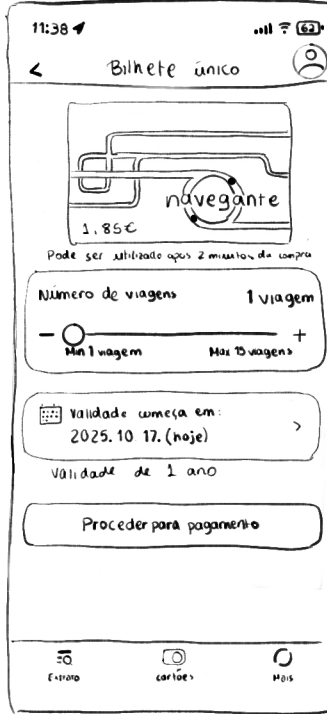 11:38
62
Bilhete único
navegante
1,85€
Pode ser utilizado apos 2 minutos da compra
Número de viagens
1 viagem
Min 1 viagem
Max 15 viagens
Validade começa em:
2025.10.17.(hoje)
Validade de 1 ano
Proceder para pagamento
Extrato
cartões
Mais